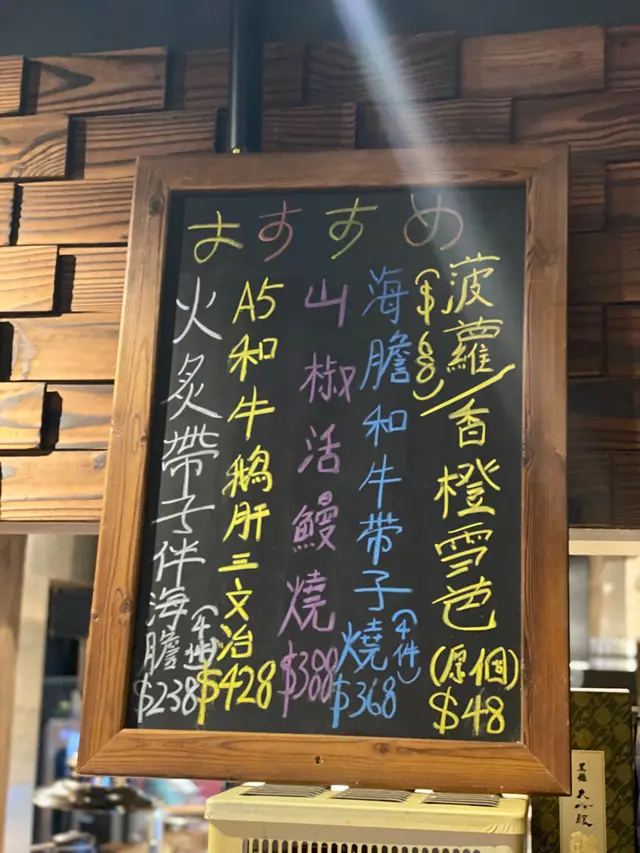 おすすめ
菠蘿/香橙雪芭(原個)$48
($68)
海膽和牛帶子燒(4件)$368
山椒活鰻燒$388
A5和牛鵝肝三文治$428
火炙帶子伴海膽(4件)$238